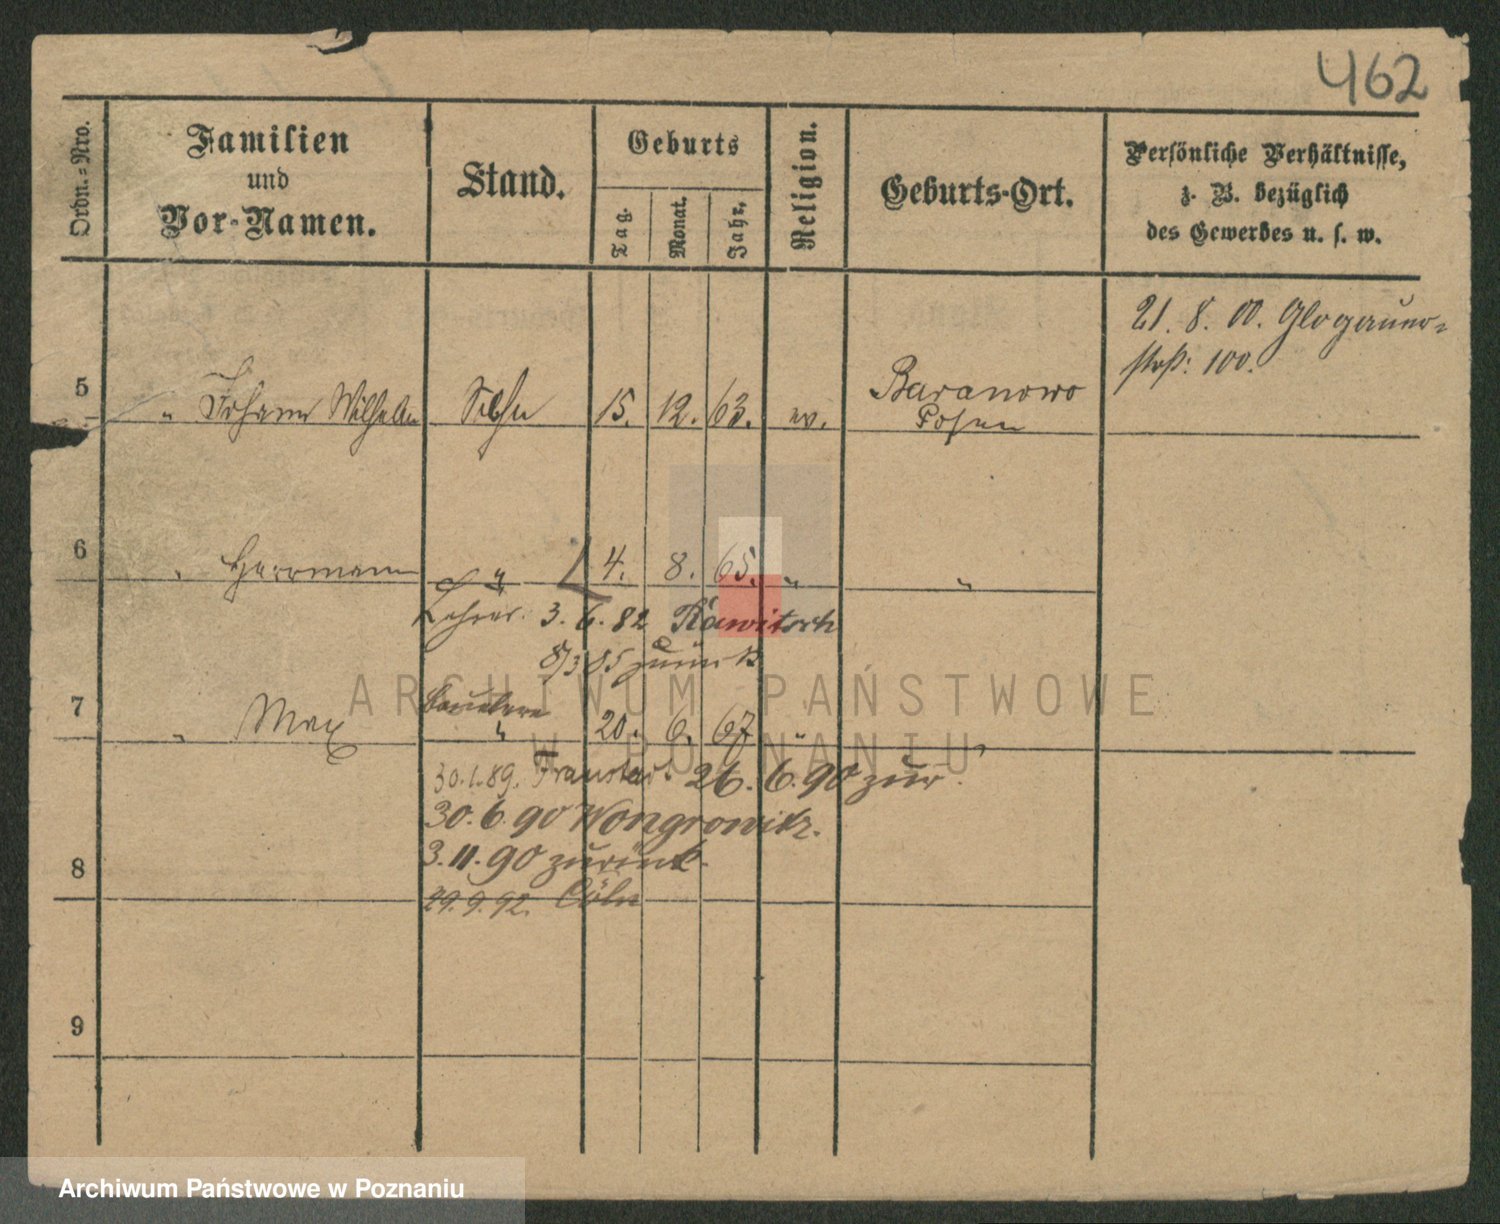 462
Ordn.-Nro.
Familien
und
Vor-Namen.
Stand.
Geburts
Tag.
Monat.
Jahr.
Religion.
Geburts-Ort.
Persönliche Verhältnisse,
z. B. bezüglich
des Gewerbes u. s. w.
21. 8. 00. Glogauer-
str: 100.
5 " Johann Wilhelm Sohn 15. 12. 63. ev. Baranowo
Posen
6 " Herrmann " 4. 8. 65. " "
Lehrer. 3. 6. 82 Rawitsch
8/3 85 zurück
7 " Max " 20. 6. 67. "
30.1.89. Fraustadt 26. 6. 90 zur.
30. 6. 90 Wongrowitz.
3. 11. 90 zurück.
8
29. 9. 92. Cöln
9
ARCHIWUM PAŃSTWOWE
W POZNANIU
Archiwum Państwowe w Poznaniu